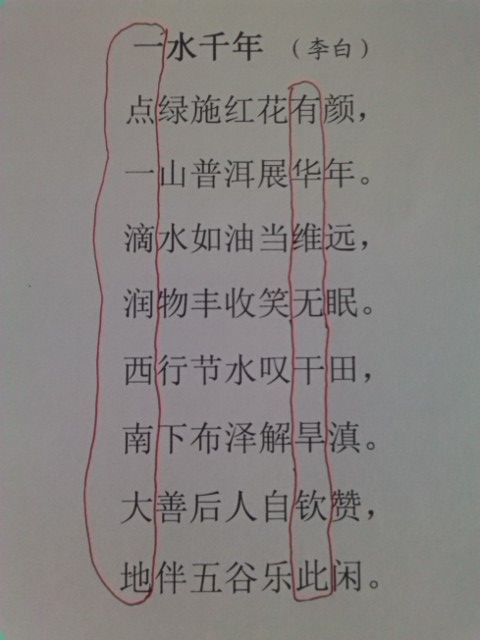 一水千年 （李白）
点绿施红花有颜，
一山普洱展华年。
滴水如油当维远，
润物丰收笑无眠。
西行节水叹干田，
南下布泽解旱滇。
大善后人自钦赞，
地伴五谷乐此闲。